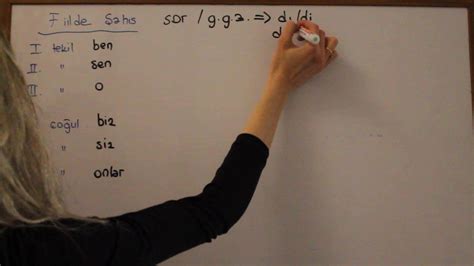 Fiilde Şahıs
SDR / g.g.z. => dı/di
d
I. tekil ben
II. " sen
III. " o
çoğul biz
" siz
" onlar